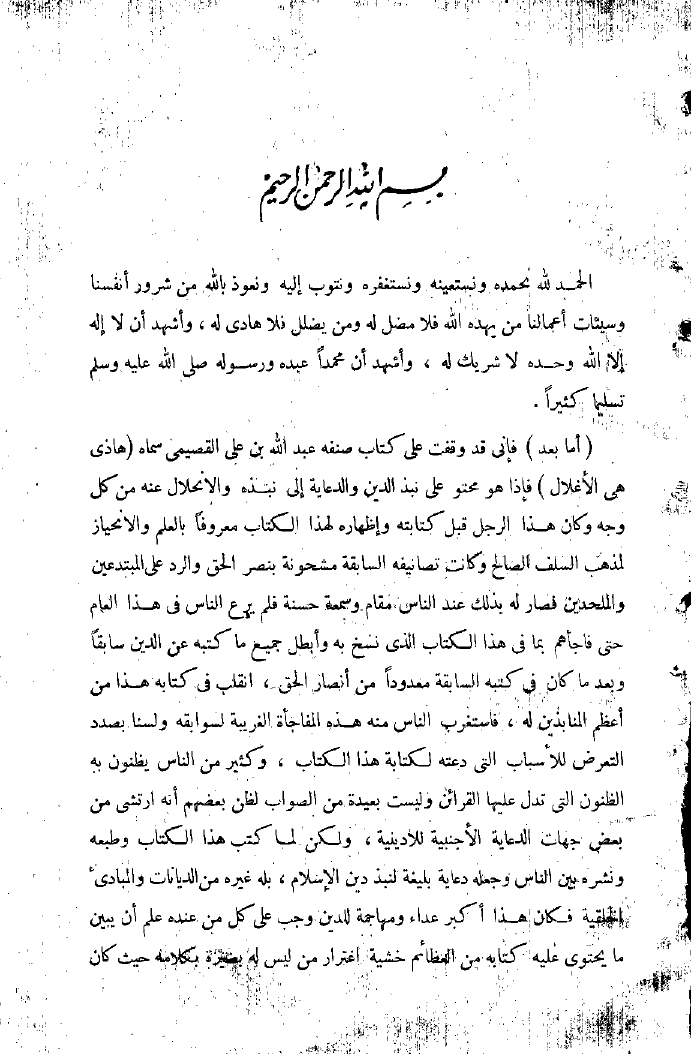 بسم الله الرحمن الرحيم
الحمد لله نحمده ونستعينه ونستغفره ونتوب إليه ونعوذ بالله من شرور أنفسنا
وسيئات أعمالنا من يهده الله فلا مضل له ومن يضلل فلا هادى له ، وأشهد أن لا إله
إلا الله وحده لا شريك له ، وأشهد أن محمداً عبده ورسوله صلى الله عليه وسلم
تسليما كثيراً .
( أما بعد ) فإنى قد وقفت على كتاب صنفه عبد الله بن على القصيمى سماه (هاذى
هى الأغلال ) فإذا هو محتو على نبذ الدين والدعاية إلى نبذه والانحلال عنه من كل
وجه وكان هذا الرجل قبل كتابته وإظهاره لهذا الكتاب معروفاً بالعلم والانحياز
لمذهب السلف الصالح وكانت تصانيفه السابقة مشحونة بنصر الحق والرد على المبتدعين
والملحدين فصار له بذلك عند الناس مقام وسمعة حسنة فلم يرع الناس فى هذا العام
حتى فاجأهم بما فى هذا الكتاب الذى نسخ به وأبطل جميع ما كتبه عن الدين سابقاً
وبعد ما كان فى كتبه السابقة معدوداً من أنصار الحق ، انقلب فى كتابه هذا من
أعظم المنابذين له ، فاستغرب الناس منه هذه المفاجأة الغريبة لسوابقه ولسنا بصدد
التعرض للأسباب التى دعته لكتابة هذا الكتاب ، وكثير من الناس يظنون به
الظنون التى تدل عليها القرائن وليست بعيدة من الصواب لظن بعضهم أنه ارتشى من
بعض جهات الدعاية الأجنبية للادينية ، ولكن لما كتب هذا الكتاب وطبعه
ونشره بين الناس وجعله دعاية بليغة لنبذ دين الإسلام ، بله غيره من الديانات والمبادئ
الخلقية فكان هذا أكبر عداء ومهاجمة للدين وجب على كل من عنده علم أن يبين
ما يحتوى عليه كتابه من العظائم خشية اغترار من ليس له بصيرة بكلامه حيث كان